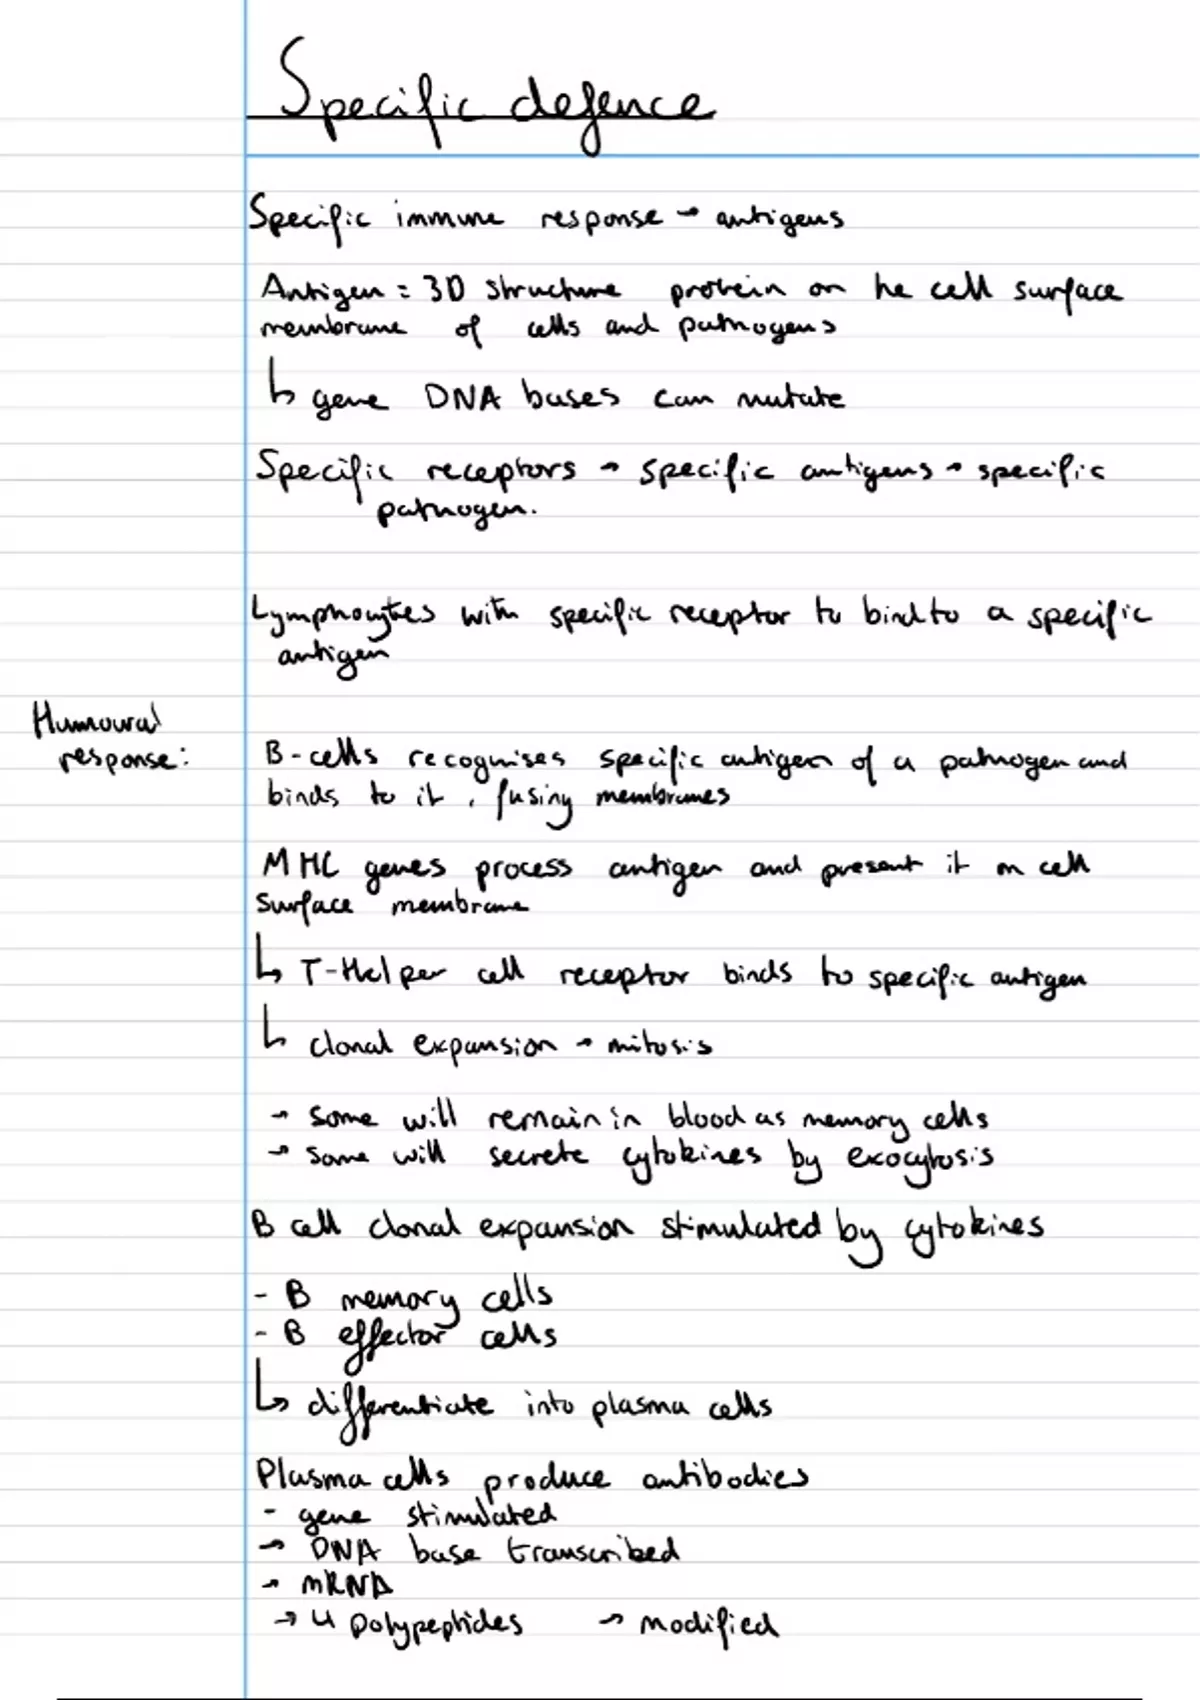 Specific defence
Specific immune response → antigens
Antigen = 3D structure protein on he cell surface
membrane of cells and pathogens
↳ gene DNA bases can mutate
Specific receptors → specific antigens → specific
pathogen.
Lymphocytes with specific receptor to bind to a specific
antigen
Humoural
response:
B-cells recognises specific antigen of a pathogen and
binds to it, fusing membranes
MHC genes process antigen and present it on cell
surface membrane
↳ T-Helper cell receptor binds to specific antigen
↳ clonal expansion → mitosis
→ some will remain in blood as memory cells
→ some will secrete cytokines by exocytosis
B cell clonal expansion stimulated by cytokines
- B memory cells
- B effector cells
↳ differentiate into plasma cells
Plasma cells produce antibodies
- gene stimulated
→ DNA base transcribed
→ mRNA
→ 4 polypeptides → modified